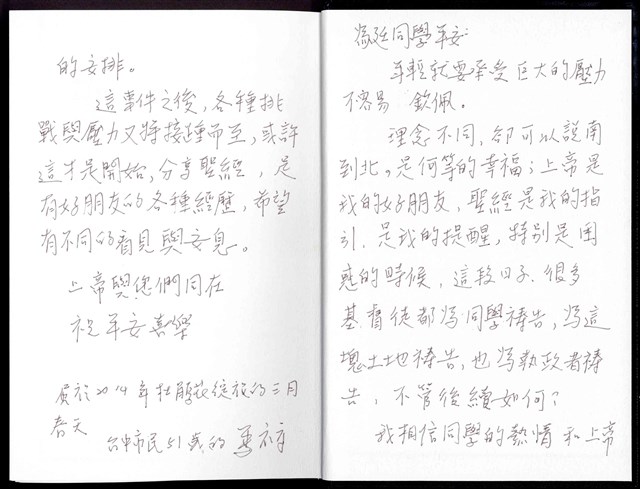 為廷同學平安:
年輕就要承受巨大的壓力
不容易 欽佩。
理念不同,卻可以說南
到北,是何等的幸福;上帝是
我的好朋友、聖經是我的指
引、是我的提醒,特別是困
惑的時候,這段日子.很多
基督徒都為同學禱告,為這
塊土地禱告,也為執政者禱
告,不管後續如何?
我相信同學的熱情和上帝
的安排。
這事件之後,各種挑
戰與壓力又將接踵而至,或許
這才是開始,分享聖經,是
有好朋友的各種經歷,希望
有不同的看見與安息。
上帝與您們同在
祝平安喜樂
寫於2014年杜鵑花綻放的三月
春天
台中市民51歲的